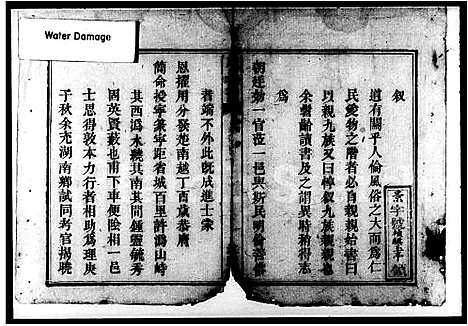 Water Damage
叙
道有關乎人倫風俗之大而為仁
民愛物之階者必自親親始書曰
以親九族又曰惇叙九族
余髫齡讀書及之謂異時稍得志
為
朝廷勑一官涖一邑與斯民明倫善俗
者端不外此既成進士蒙
恩擢用分發楚南越丁酉歲恭膺
簡命授寧寧距省城百里許溈山峙
其西溈水繞其南其間鍾靈毓秀
固英賢藪也甫下車便陰相一邑
士思得敦本力行者相助為理庚
子秋余充湖南鄉試同考官揭曉